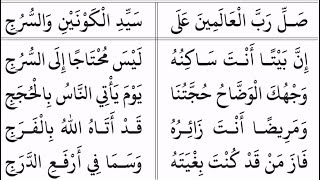 صَلِّ رَبَّ الْعَالَمِينَ عَلَى سَيِّدِ الْكَوْنَيْنِ وَالسُّرُجِ
إِنَّ بَيْتًا أَنْتَ سَاكِنُهُ لَيْسَ مُحْتَاجًا إِلَى السُّرُجِ
وَجْهُكَ الْوَضَّاحُ حُجَّتُنَا يَوْمَ يَأْتِي النَّاسُ بِالْحُجَجِ
وَمَرِيضًا أَنْتَ زَائِرُهُ قَدْ أَتَاهُ اللهُ بِالْفَرَجِ
فَازَ مَنْ قَدْ كُنْتَ بِغْيَتَهُ وَسَمَا فِي أَرْفَعِ الدَّرَجِ